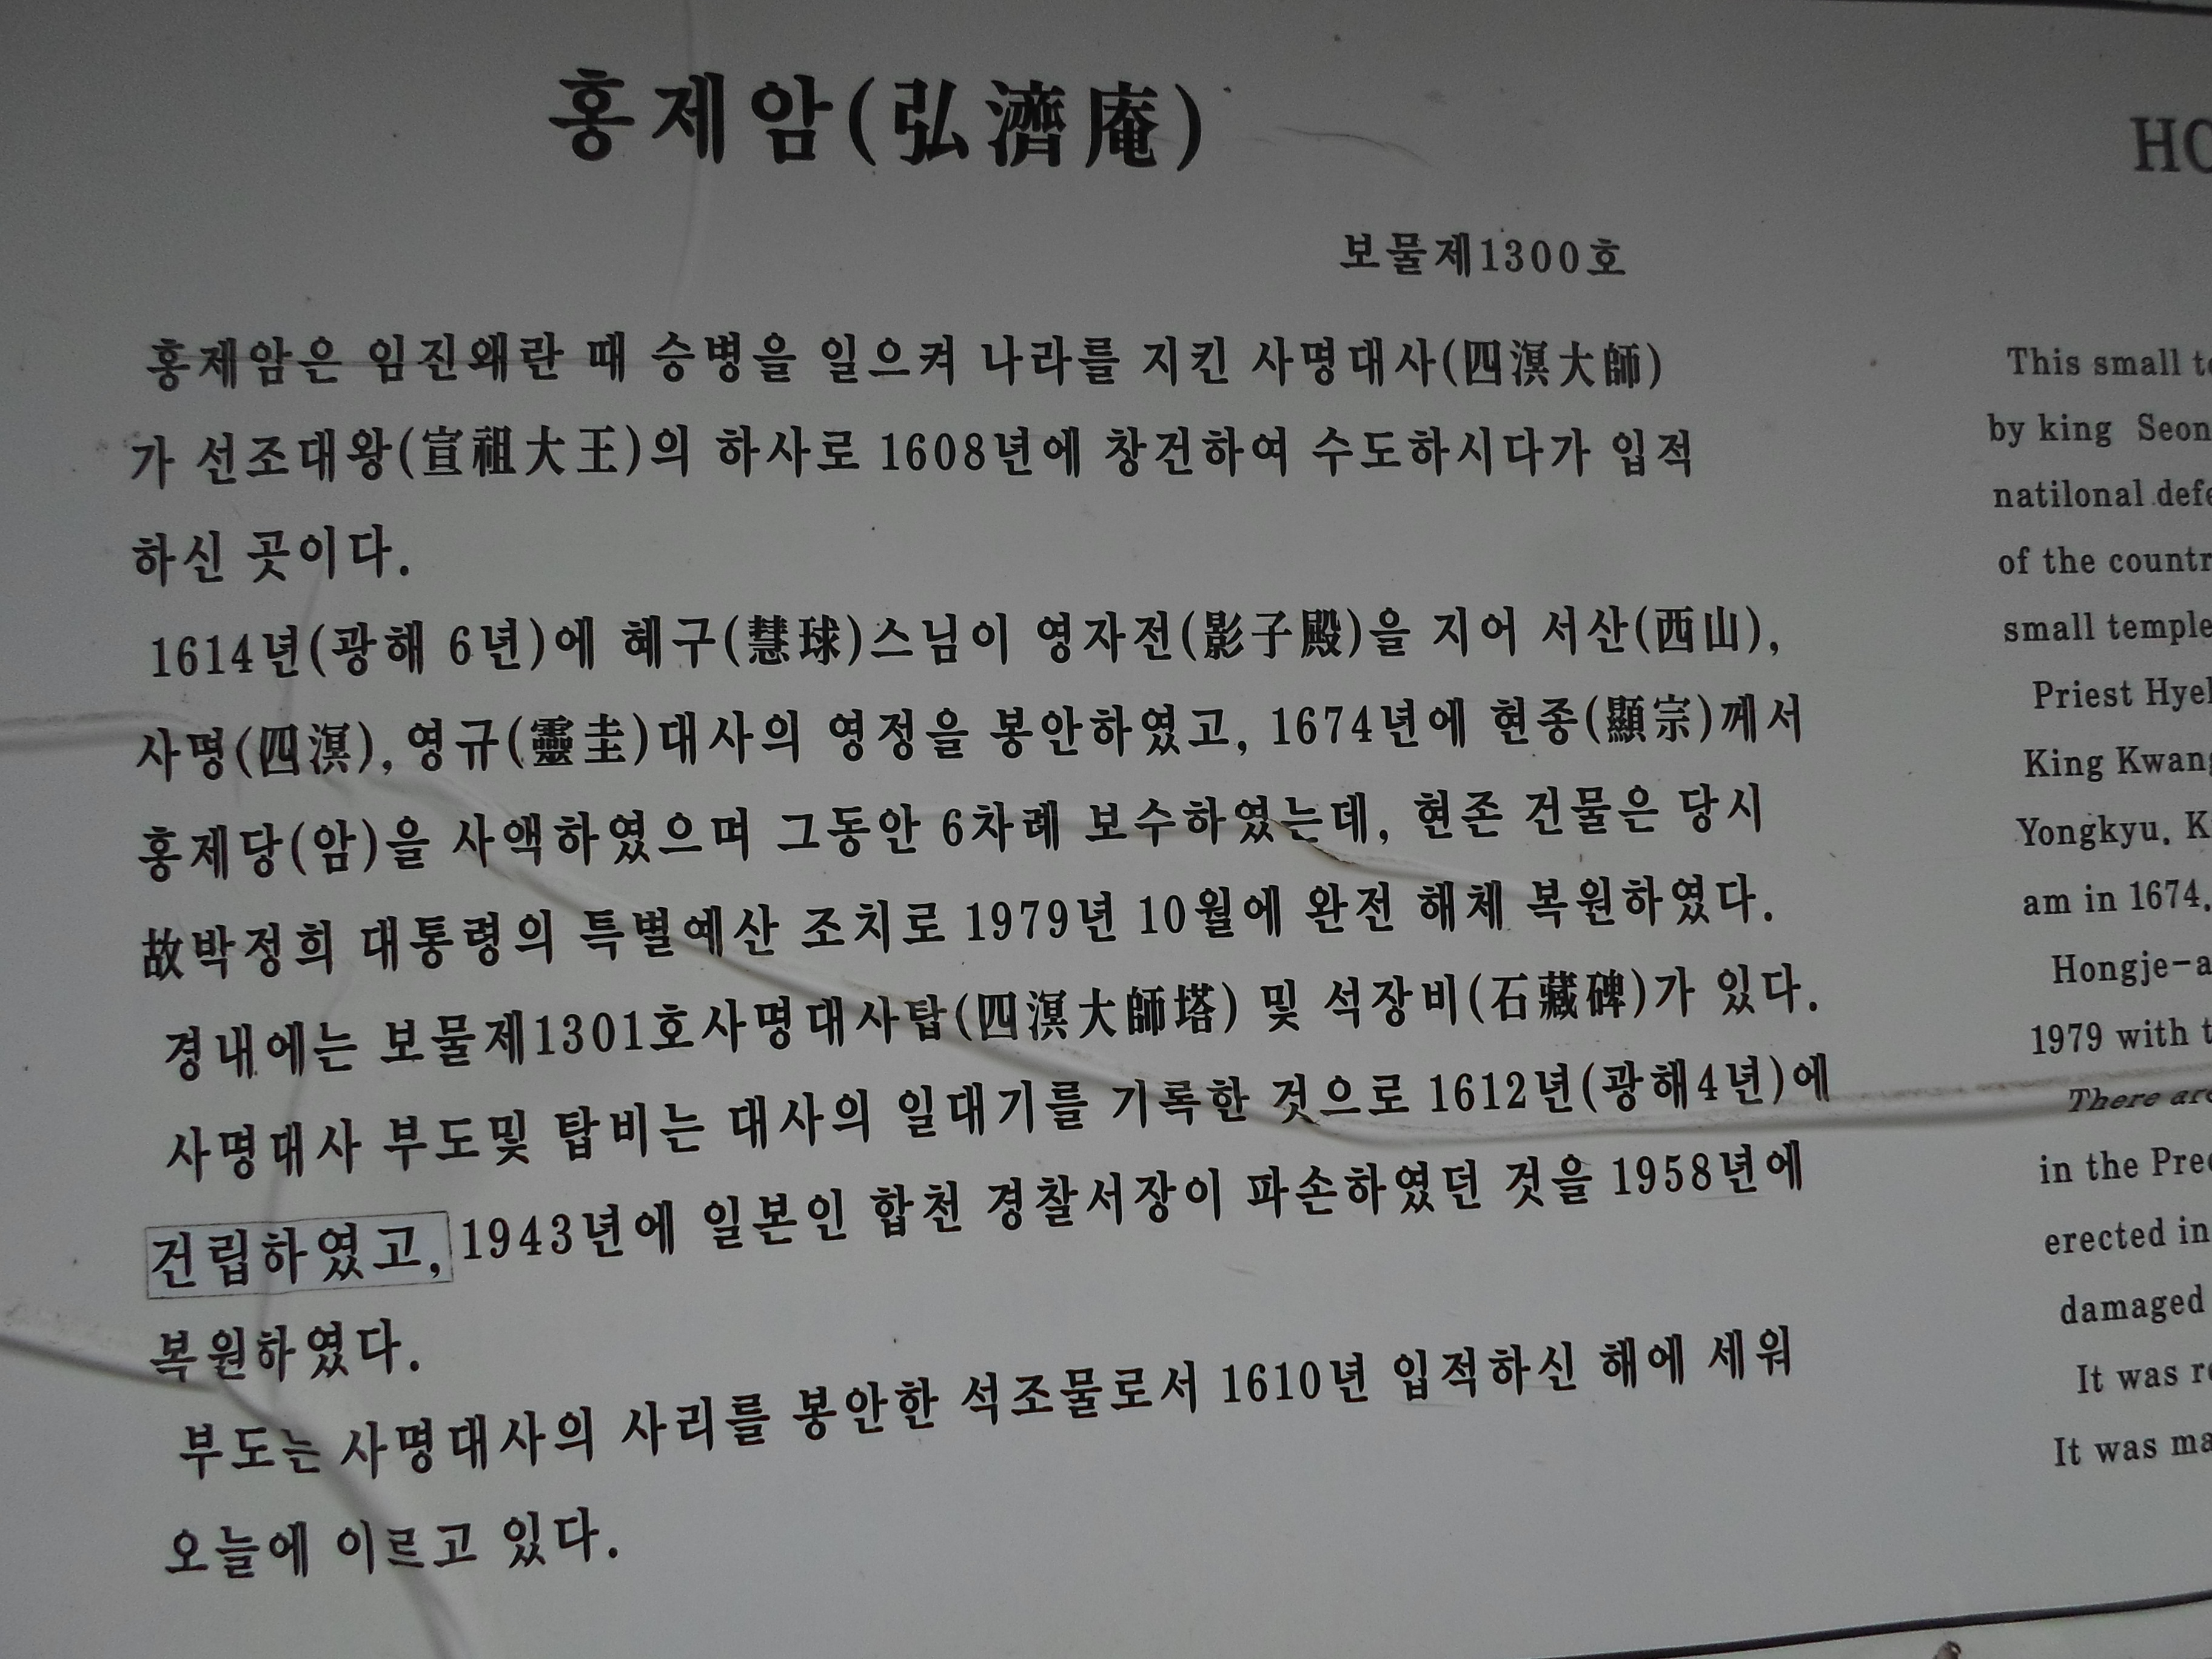 홍제암(弘濟庵)
보물제1300호
홍제암은 임진왜란 때 승병을 일으켜 나라를 지킨 사명대사(四溟大師)
가 선조대왕(宣祖大王)의 하사로 1608년에 창건하여 수도하시다가 입적
하신 곳이다.
1614년(광해 6년)에 혜구(慧球)스님이 영자전(影子殿)을 지어 서산(西山),
사명(四溟), 영규(靈圭)대사의 영정을 봉안하였고, 1674년에 현종(顯宗)께서
홍제당(암)을 사액하였으며 그동안 6차례 보수하였는데, 현존 건물은 당시
故박정희 대통령의 특별예산 조치로 1979년 10월에 완전 해체 복원하였다.
경내에는 보물제1301호사명대사탑(四溟大師塔) 및 석장비(石藏碑)가 있다.
사명대사 부도및 탑비는 대사의 일대기를 기록한 것으로 1612년(광해4년)에
건립하였고, 1943년에 일본인 합천 경찰서장이 파손하였던 것을 1958년에
복원하였다.
부도는 사명대사의 사리를 봉안한 석조물로서 1610년 입적하신 해에 세워
오늘에 이르고 있다.
This small
by king
natilonal
of the
small temple
Priest
King
Yongkyu.
am in 1674.
1979 with
There
in the
erected in
damaged
It was
It was